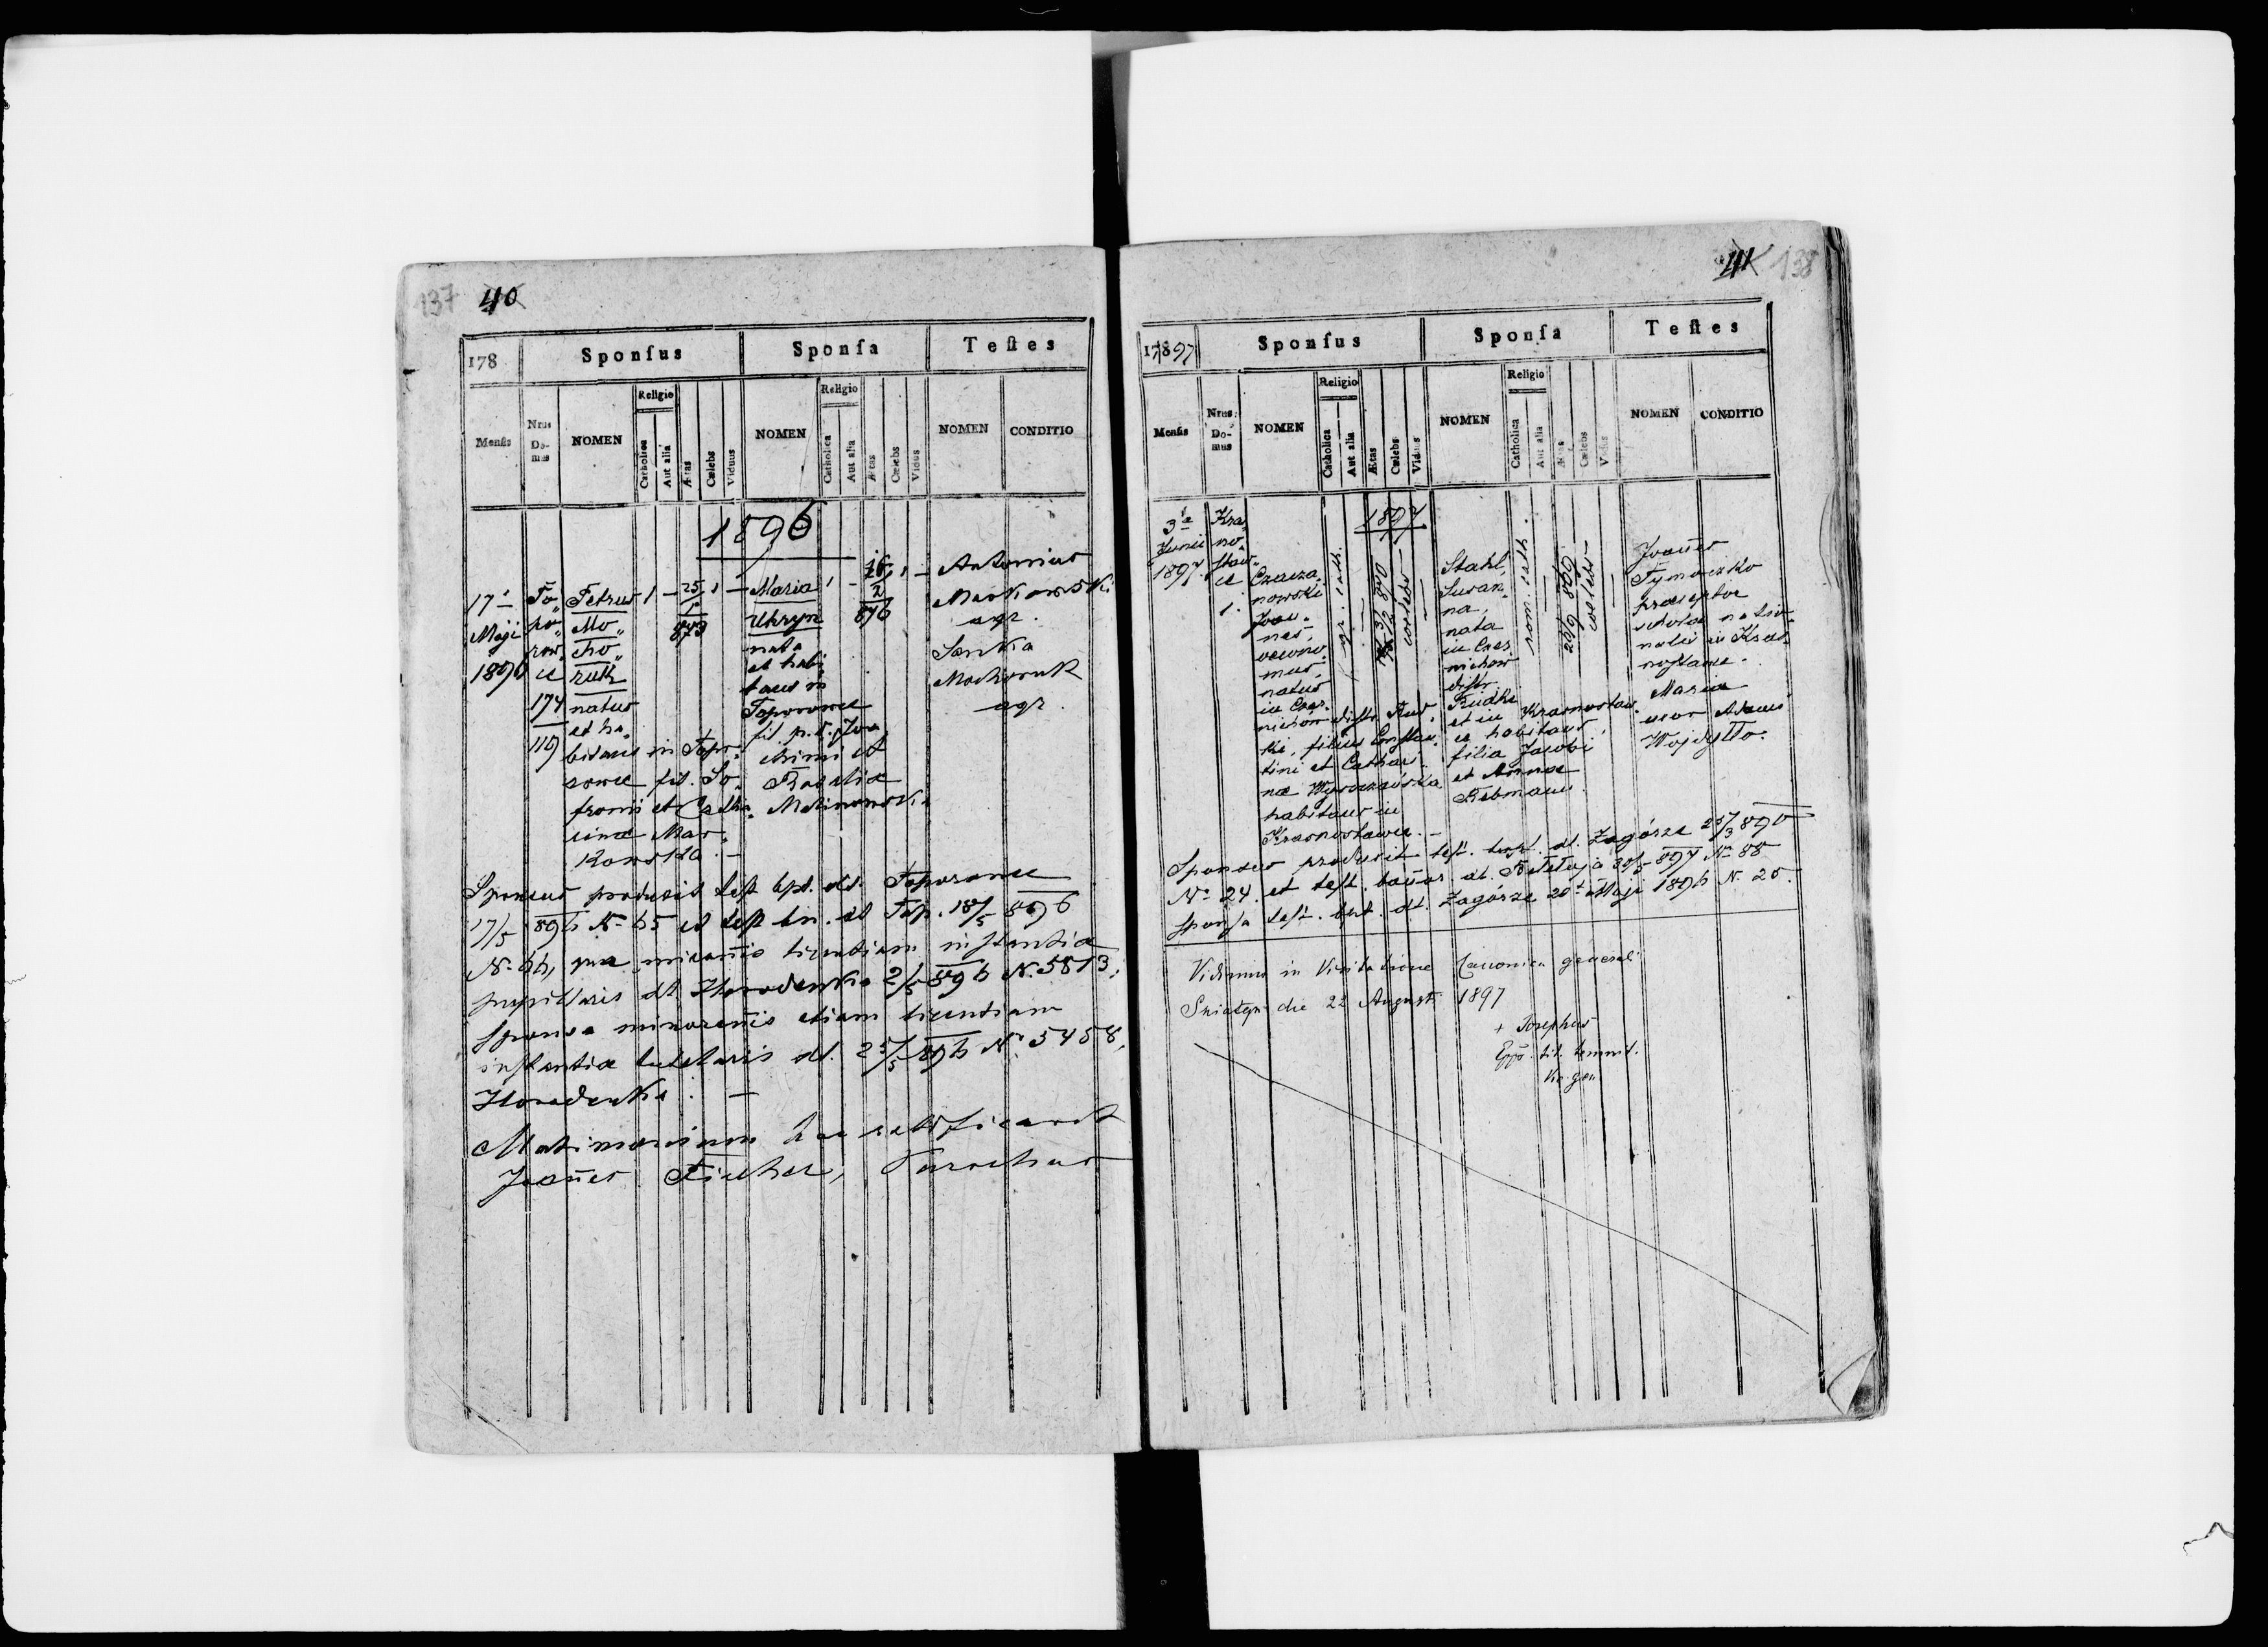 137 40
178 Sponſus Sponſa Teſtes
Menſis Nrus Domus NOMEN Religio Catholica Aut alia Ætas Cælebs Viduus NOMEN Religio Catholica Aut alia Ætas Cælebs Vidus NOMEN CONDITIO
1896
17
Maji
1896
To„
po„
row„
ce
174
119
Petrus
Mo„
cho„
ruk
natus
et ha„
bitans in Topo„
rowce fil. So„
fronii et Catha„
rinae Mar„
kowska. —
1 — 25/1 873 1 —
Maria
Ukryn
nata
et habi„
tans in
Toporowce
fil. p. d. Joa
chimi et
Rosalia
Malinowska
1 — 16/2 876 1 —
Antonius
Markowski
agr.
Senka
Mochoruk
agr.
Sponsus produxit test. bpt. dt. Toporowce
17/5 896 N. 65 et test bn. dt Top. 18/5 896
N. 66, qua minorennis licentiam instantia
pupillaris dt. Horodenka 2/5 896 N. 5813,
Sponsa minorennis etiam licentiam
instantia tutelaris dt. 25/5 896 N. 5458,
Horodenka. —
Matrimonium hoc
Joannes Parochus
41 138
17897 Sponſus Sponſa Teſtes
Menſis Nrus Domus NOMEN Religio Catholica Aut alia Ætas Cælebs Viduus NOMEN Religio Catholica Aut alia Ætas Cælebs Vidus NOMEN CONDITIO
1897
3
Junii
1897.
Kra„
no„
staw„
ce
1.
Czerza„
nowski
Joan„
nes,
natus
in Czer„
nichów distr. Rud„
ki, filius Constan„
tini et Cathari„
nae
habitans in
Krasnostawce. —
gr. cath.
coelebs
Stahl,
Susan„
na,
nata
in Czer„
nichów
distr.
Rudki
et in Krasnostaw„
ce habitans,
filia Jacobi
et Annae
Rebmann.
rom. cath.
20/9 869
coelebs
Joannes
Tymoczko
praeceptor
schola
in Kras„
nostawce.
Maria
uxor Adami
Wojdyłło.
Sponsus produxit test. bapt. dt. Zagórze 25/3 890
N. 24. et test. bannor. dt. Bełełuja 30/5 897 N. 88
Sponsa test. bpt. dt. Zagórze 20 Maji 1896 N. 20.
Vidimus in Visitatione Canonica generali
Sniatyn die 22 August. 1897
+ Josephus
Epps. tit.
Vic. gen